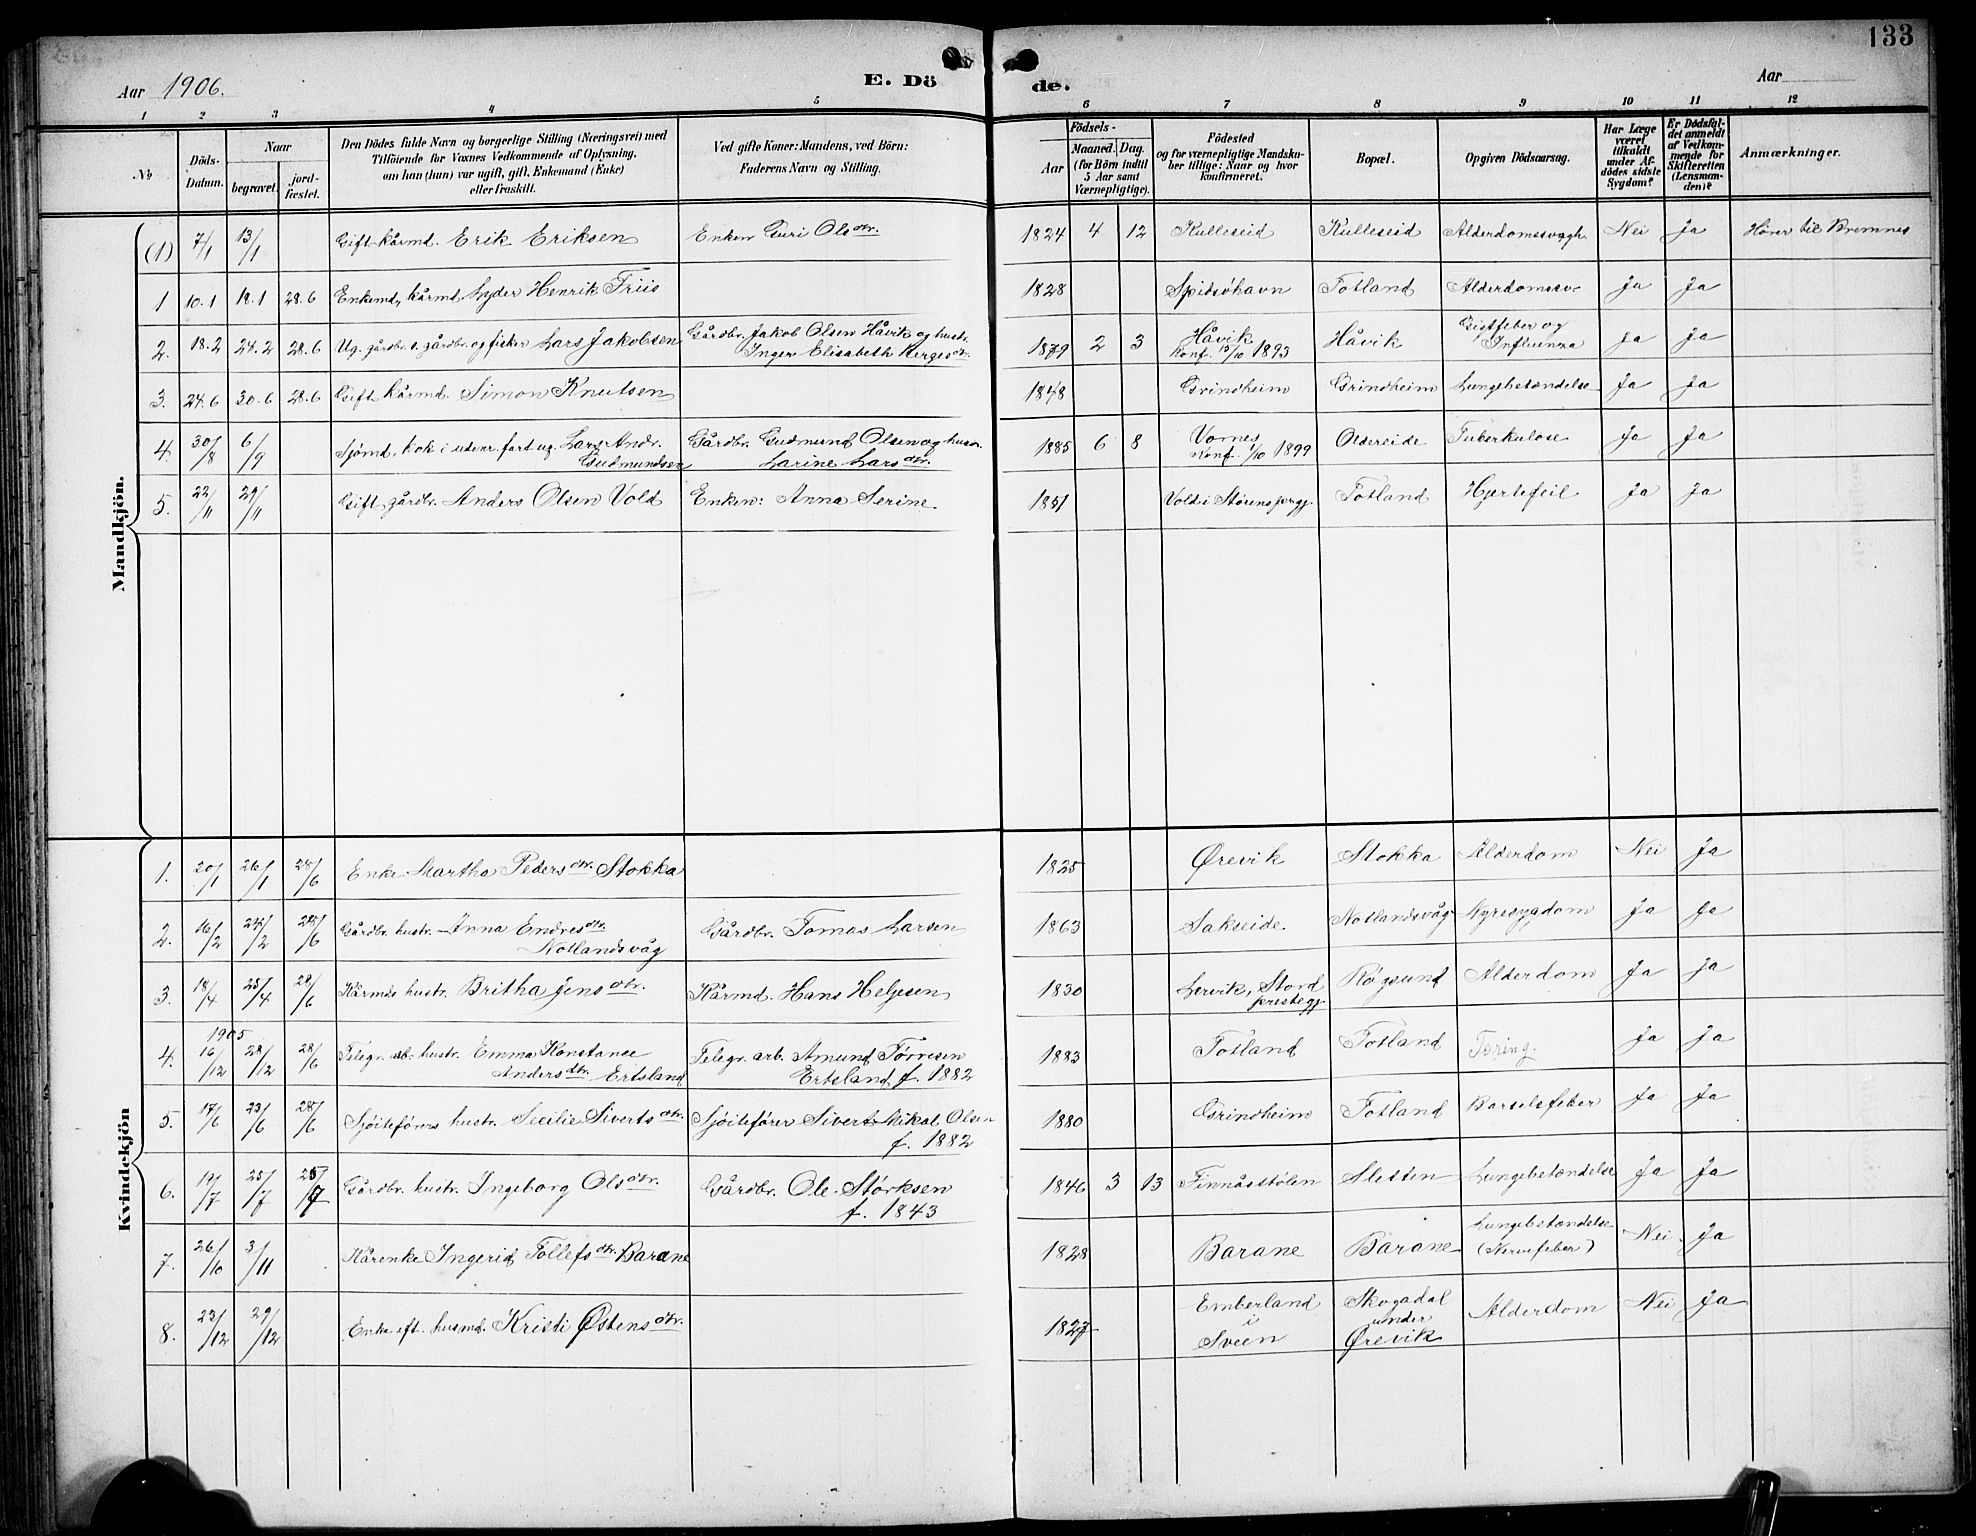 133
Aar 1906.
E. Dö
de.
Aar
1 2 3 4 5 6 7 8 9 10 11 12
No
Döds-Datum.
Naar
begravet.
jordfæstet.
Den Dödes fulde Navn og borgerlige Stilling (Næringsvei) med
Tilföiende for Voxnes Vedkommende af Oplysning,
om han (hun) var ugift, gift, Enkemand (Enke)
eller fraskilt.
Ved gifte Koner: Mandens, ved Börn:
Faderens Navn og Stilling.
Födsels-
Aar
Maaned. Dag.
(for Börn indtil
5 Aar samt
Værnepligtige).
Födested
og for værnepligtige Mandskaber tillige: Naar og hvor
konfirmeret.
Bopæl.
Opgiven Dödsaarsag.
Har Læge
været
tilkaldt
under Afdödes sidste
Sygdom?
Er Dödsfaldet anmeldt
af Vedkommende for
Skifteretten
(Lensmanden)?
Anmærkninger.
Mandkjön.
(1) 7/1 13/1 Gift kårmd. Erik Eriksen Enken Guri Olsdtr. 1824 4 12 Kulleseid Kulleseid Alderdomssvagh. Nei Ja Hører til Bremnes
1 10.1 18.1 28.6 Enkemd, kårmd, Lyder Henrik Friis 1828 Spidsøhavn Totland Alderdomssv. Ja Ja
2. 18.2 24.2 28.6 Ug. gårdbr. s. gårdbr. og fisker Lars Jakobsen Gårdbr. Jakob Olsen Håvik og hustr.
Inger Elisabeth Børgesdtr. 1879 2 3 Håvik
Konf. 15/10 1893 Håvik Gigtfeber og
Influenza Ja Ja
3. 24.6 30.6 28.6 Gift kårmd. Simon Knutsen 1848 Grindheim Grindheim Lungebetændelse Ja Ja
4. 30/8 6/9 Sjømd, kok i udenr. fart ug. Lars Andr.
Gudmundsen Gårdbr. Gudmund Olsen og hustr.
Larine Larsdtr. 1885 6 8 Vornes
Konf. 1/10 1899 Oldereide Tuberkulose Ja Ja
5. 22/11 29/11 Gift gårdbr. Anders Olsen Vold Enken: Anna Serine. 1851 Vold i Størens prgj. Totland Hjertefeil Ja Ja
Kvindekjön
1. 20/1 26/1 28/6 Enke Martha Pedersdtr. Stokka 1825 Ørevik Stokka Alderdom Nei Ja
2. 16/2 24/2 28/6 Gårdbr. hustr. Anna Endresdtr.
Notlandsvåg Gårdbr. Tomas Larsen 1863 Sakseide. Notlandsvåg Nyresygdom Ja Ja
3. 18/4 25/4 28/6 Kårmds hustr. Britha Jensdtr. Kårmd. Hans Helgesen 1830 Lervik, Stord
prestegj. Røgsund Alderdom Ja Ja
4. 1905
16/12 28/12 28/6 Telegr. arb. hustr. Emma Konstance
Andersdtr. Ertsland Telegr. arb. Amund Tørresen
Ertsland f. 1882 1883 Totland Totland Tæring. Ja Ja
5. 17/6 23/6 28/6 Sjøiteførers hustr. Secilie Sivertsdtr. Sjøitefører Sivert Mikal Olsen
f. 1882 1880 Grindheim Totland Barselsfeber Ja Ja
6. 19/7 25/7 25/7 Gårdbr. hustr. Ingeborg Olsdtr. Gårdbr. Ole Størksen
f. 1843 1846 3 13 Finnåsstølen Sletten Lungebetændelse Ja Ja
7. 26/10 3/11 Kårenke Ingerid Tollefsdtr. Barane 1828 Barane Barane Lungebetændelse
(Nervefeber) Nei Ja
8. 23/12 29/12 Enke eft. husmd. Kristi Østensdtr. 1827 Emberland
i
Sveen Skogadal
under
Ørevik Alderdom Nei Ja